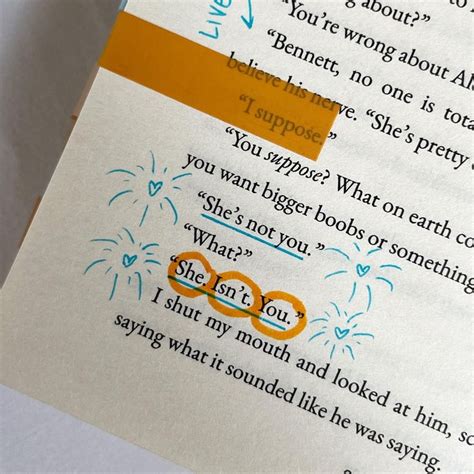 LIVE
g about?"
"You're wrong about Al
"Bennett, no one is tota
believe his nerve. "She's pretty
"I suppose."
"You suppose? What on earth co
you want bigger boobs or something
"She's not you."
"What?"
"She. Isn't. You."
I shut my mouth and looked at him, sc
saying what it sounded like he was saying.